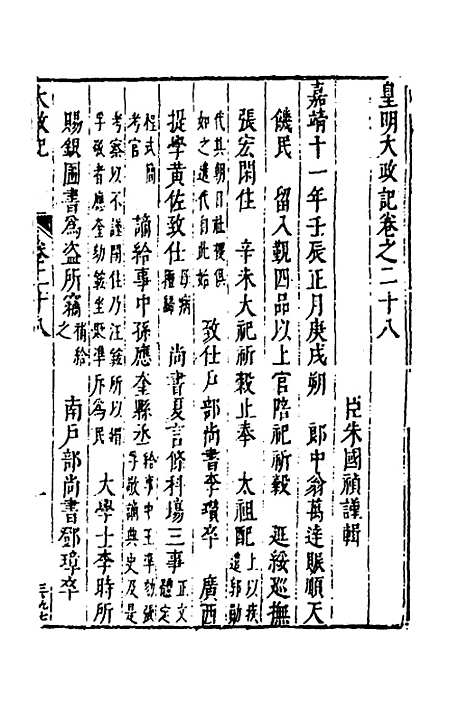 皇明大政記卷之二十八
臣朱國禎謹輯
嘉靖十一年壬辰正月庚戌朔 郎中翁萬達賑順天
饑民 留入覲四品以上官陪祀祈穀 延綏巡撫
張宏閑住 辛未大祀祈穀止奉 太祖配上以疾遣郭勛
代其朝日社稷俱如之遣代自此始 致仕戶部尚書李瓚卒 廣西
提學黃佐致仕母病擅歸 尚書夏言條科場三事正文體定
程式簡考官 謫給事中孫應奎縣丞給事中王準劾
孚敬謫典史及是
考察以不謹閑住乃汪鋐所以媚
孚敬者應奎劾鋐坐貶準斥為民 大學士李時所
賜銀圖書為盜所竊補給之 南戶部尚書鄧璋卒
大政記 卷二十八 一